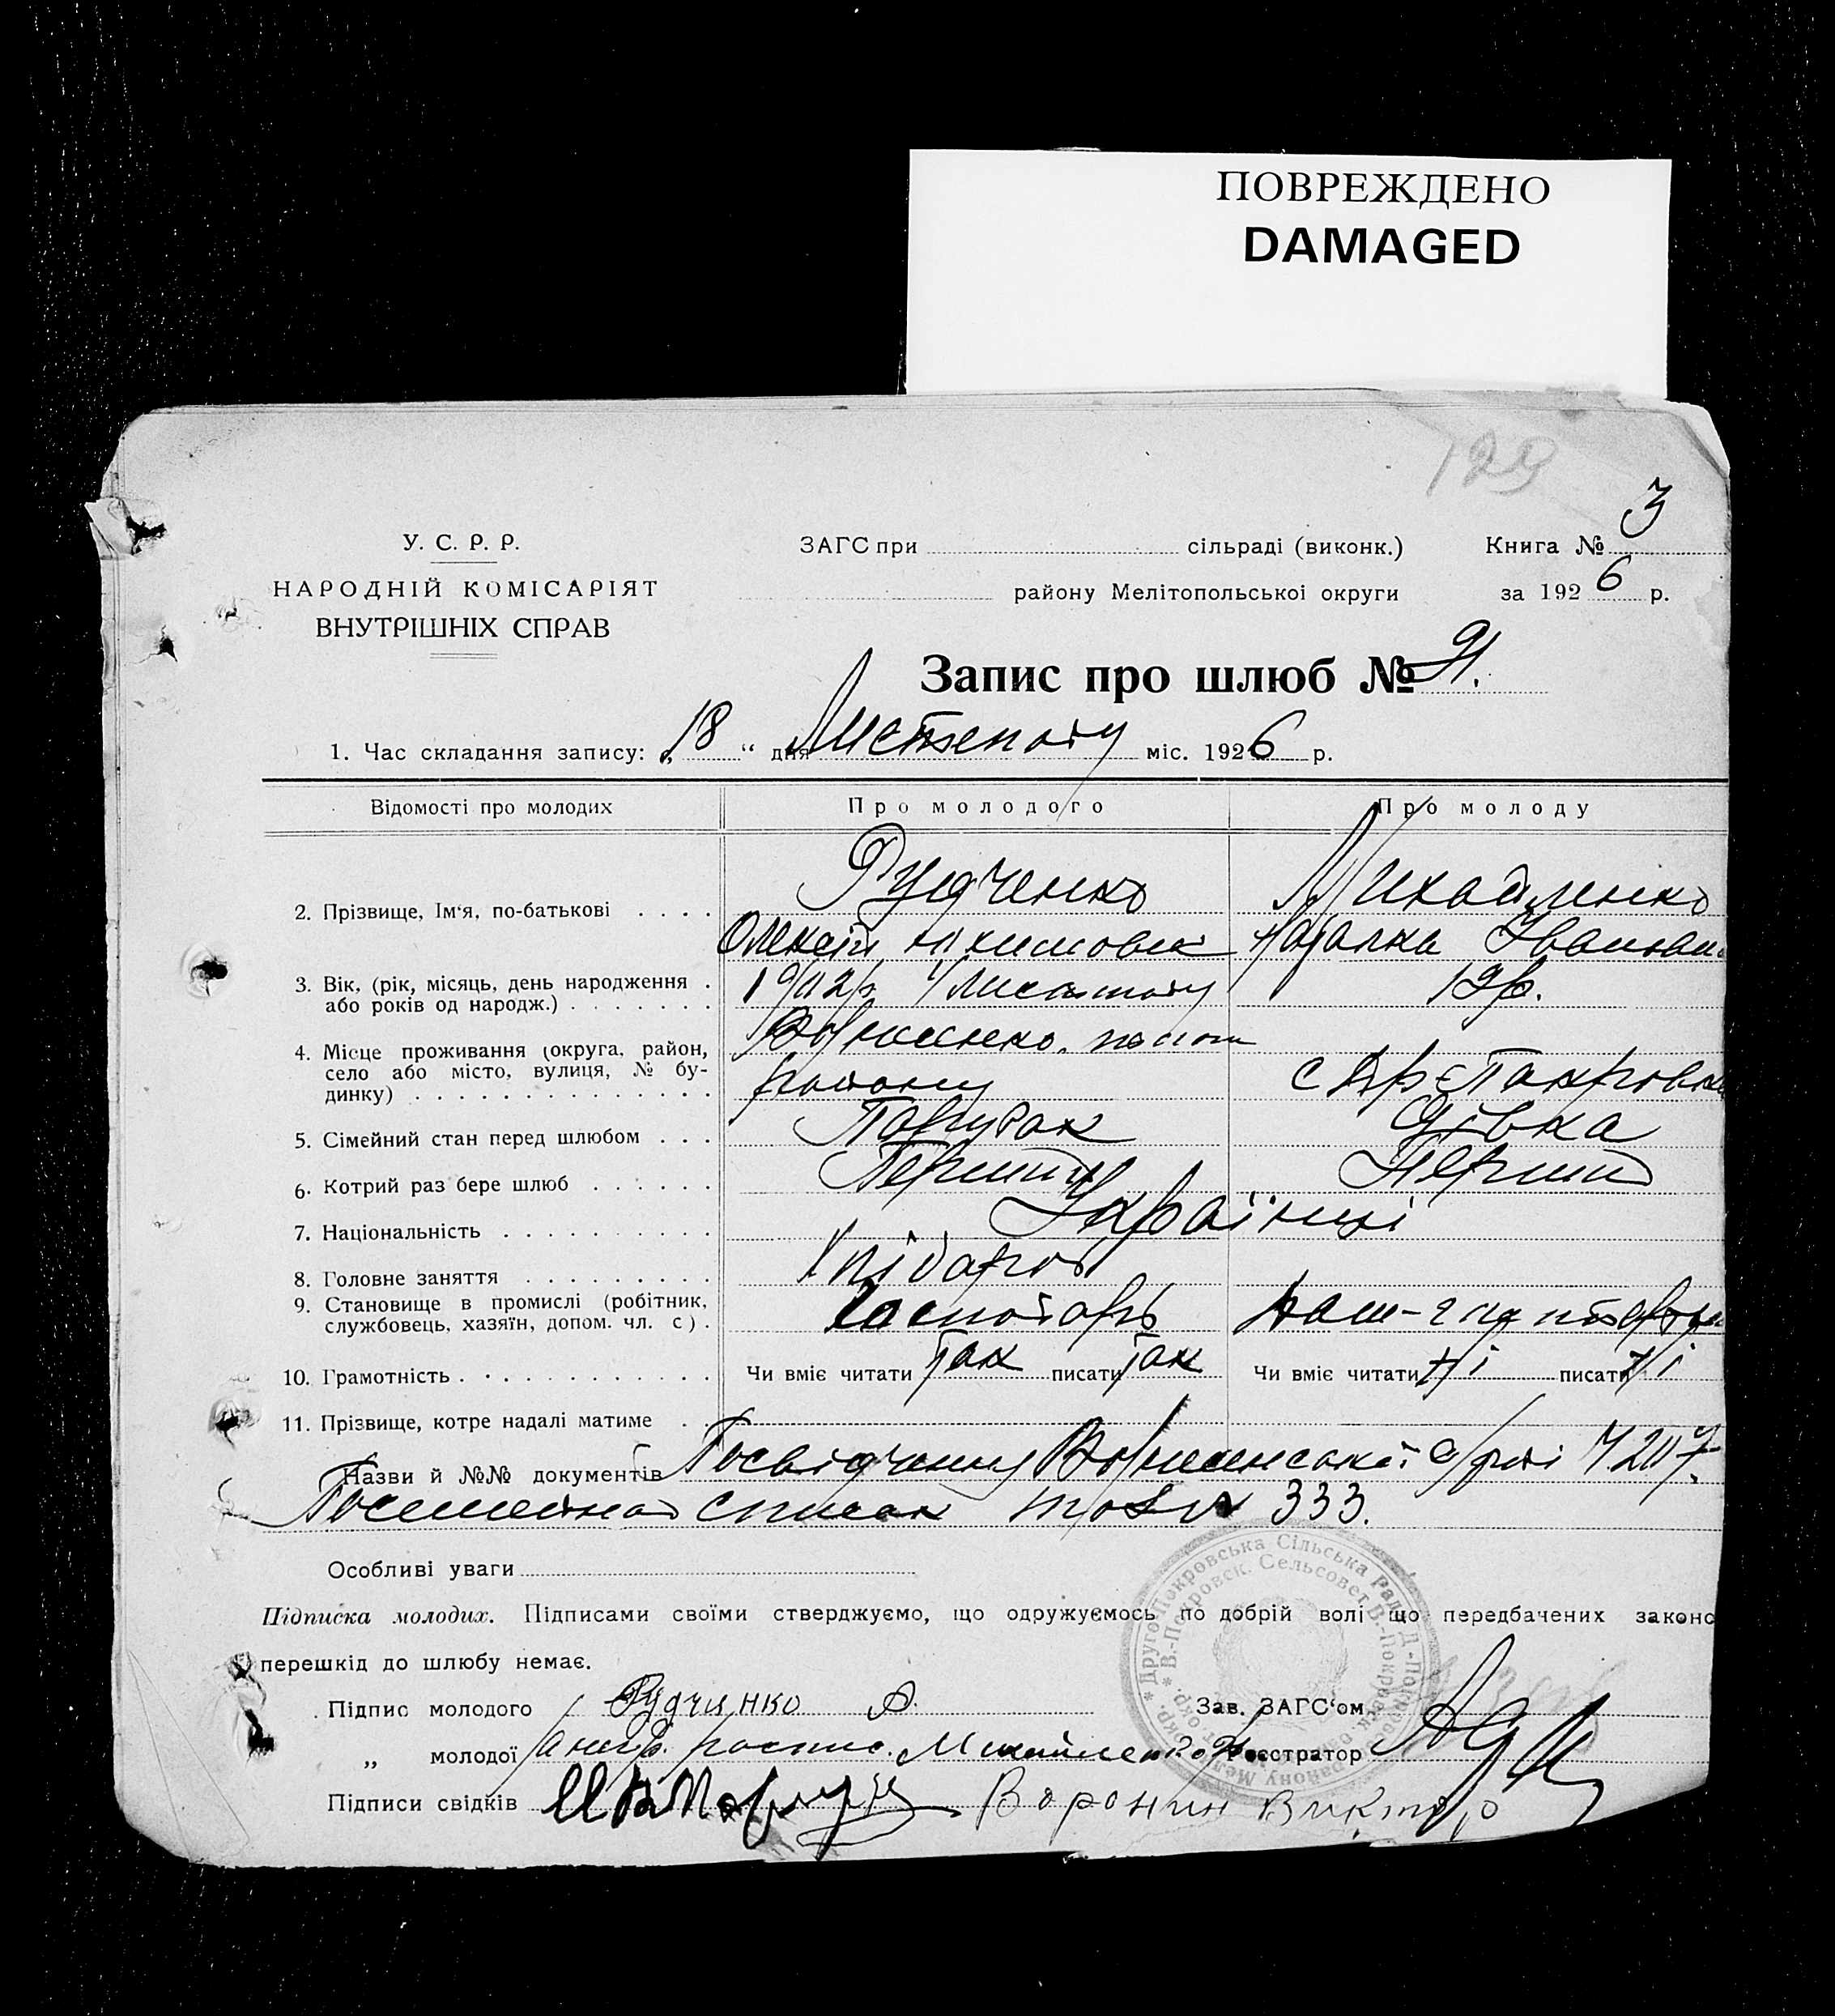 ПОВРЕЖДЕНО
DAMAGED
129
У. С. Р. Р.
НАРОДНІЙ КОМІСАРІЯТ
ВНУТРІШНІХ СПРАВ
ЗАГС при сільраді (виконк.)
Книга № 3
району Мелітопольської округи
за 1926 р.
Запис про шлюб № 91.
1. Час складання запису: „18“ дня Листопаду міс. 1926 р.
Відомості про молодих
Про молодого
Про молоду
2. Прізвище, Ім'я, по-батькові
Рудченко
Олексій
Михайленко
Наталка Іванівн
3. Вік, (рік, місяць, день народження
або років од народж.)
Листопаду
19 р.
4. Місце проживання (округа, район,
село або місто, вулиця, № бу-
динку)
району
с Др-Покровка
5. Сімейний стан перед шлюбом
Парубок
Дівка
6. Котрий раз бере шлюб
Перший
Перший
7. Національність
Українці
8. Головне заняття
Хлібороб
9. Становище в промислі (робітник,
службовець, хазяїн, допом. чл. с).
Господарь
10. Грамотність
Чи вміє читати Так писати Так
Чи вміє читати Ні писати Ні
11. Прізвище, котре надалі матиме
Назви й №№ документів Посвідчення
Посемейной список 333.
Особливі уваги
Підписка молодих. Підписами своїми стверджуємо, що одружуємось по добрій волі що передбачених законо
перешкід до шлюбу немає.
Підпис молодого Рудченко О.
Зав. ЗАГС'ом
„ молодої Михайленко
Реєстратор
Підписи свідків Воронин Виктор
Друго-Покровська Сільська Рада Д-Покровськ. району Меліт. окр.
В.-Покровск. Сельсовет В.-Покровск.